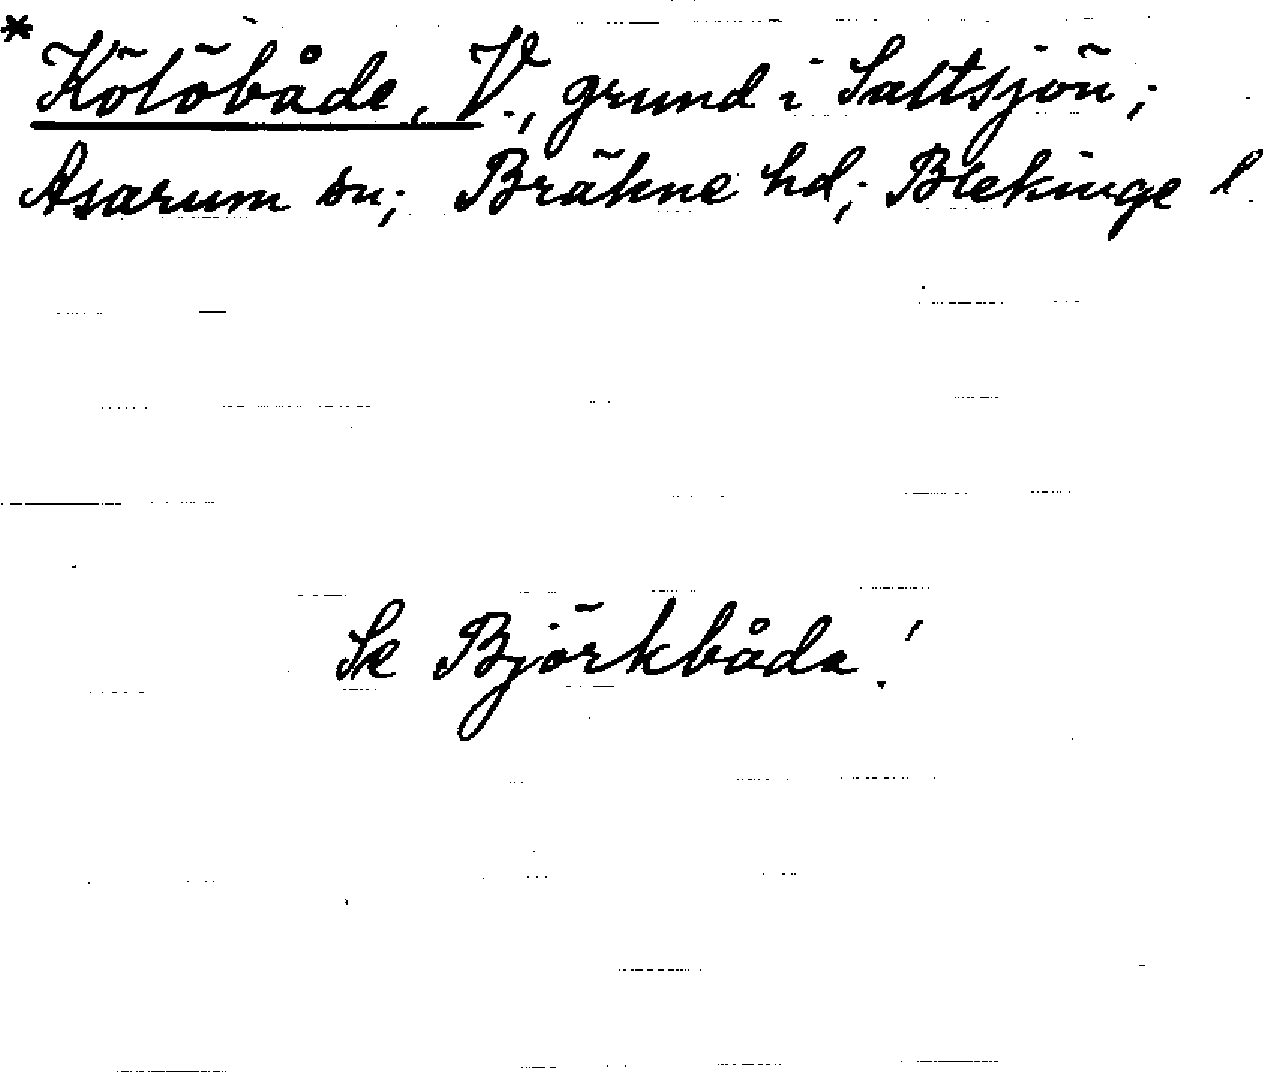 * Kölöbåde, V., grund i Saltsjön;
Asarum sn; Bräkne hd; Blekinge l.
Se Björkbåda!